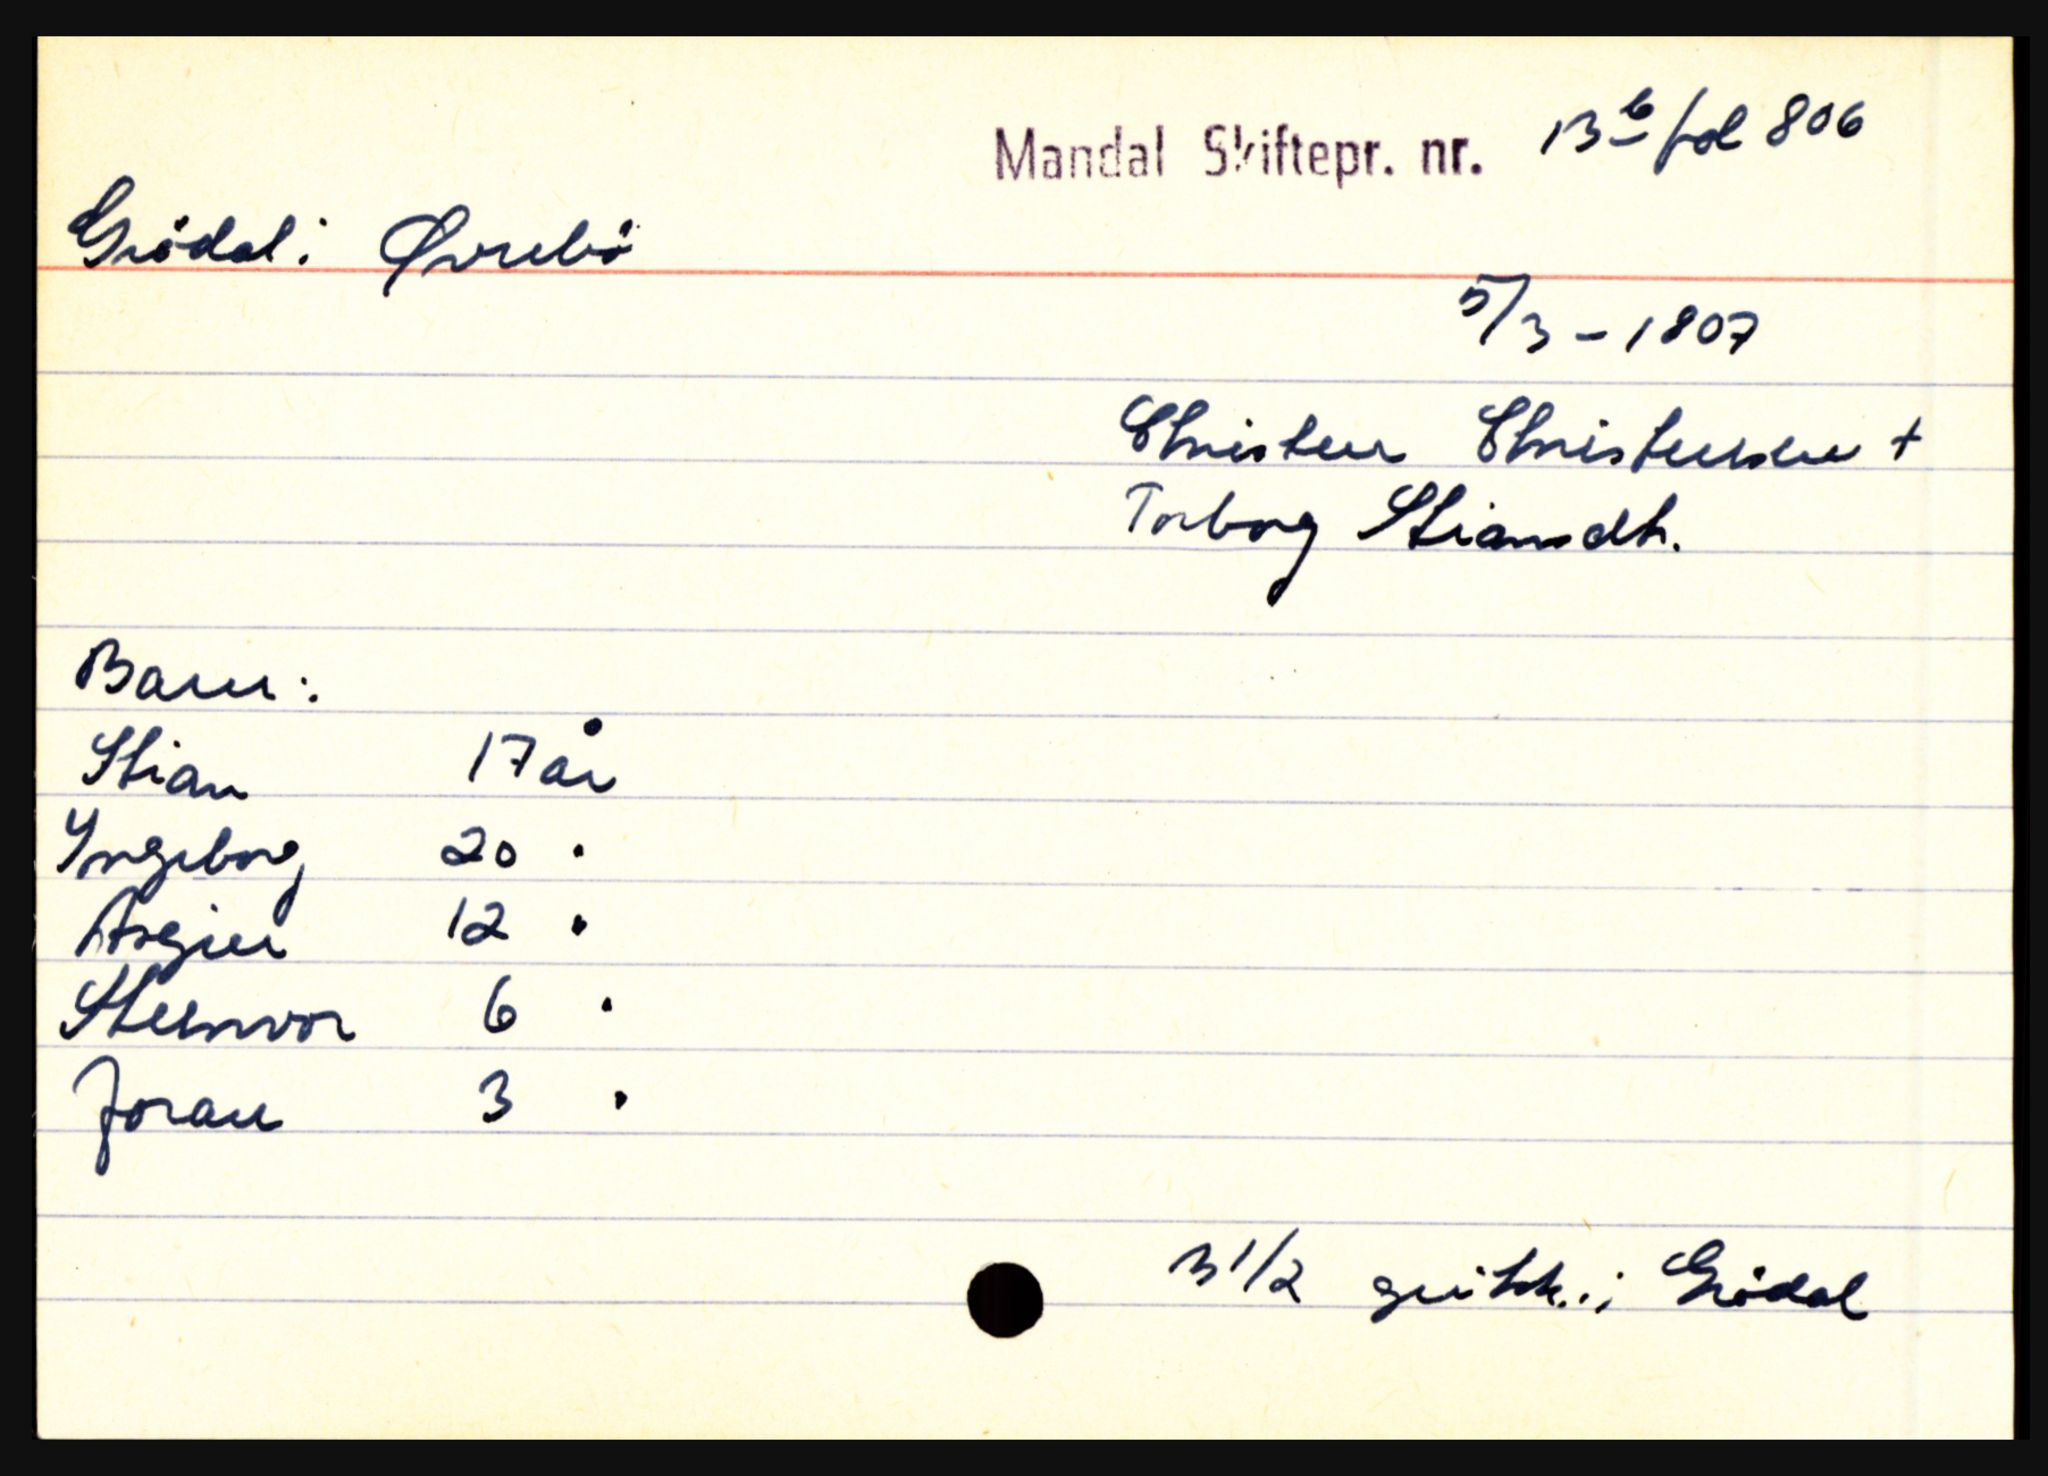 Mandal Skiftepr. nr. 13b fol 806
Grödal i Øvrebö
5/3 - 1807
Christen Christensen +
Torborg Stiansdtr.
Barn:
Stian 17 år
Yngeborg 20 "
Asgier 12 "
Steinvor 6 "
Joran 3 "
3 1/2 geitsk. i Grödal